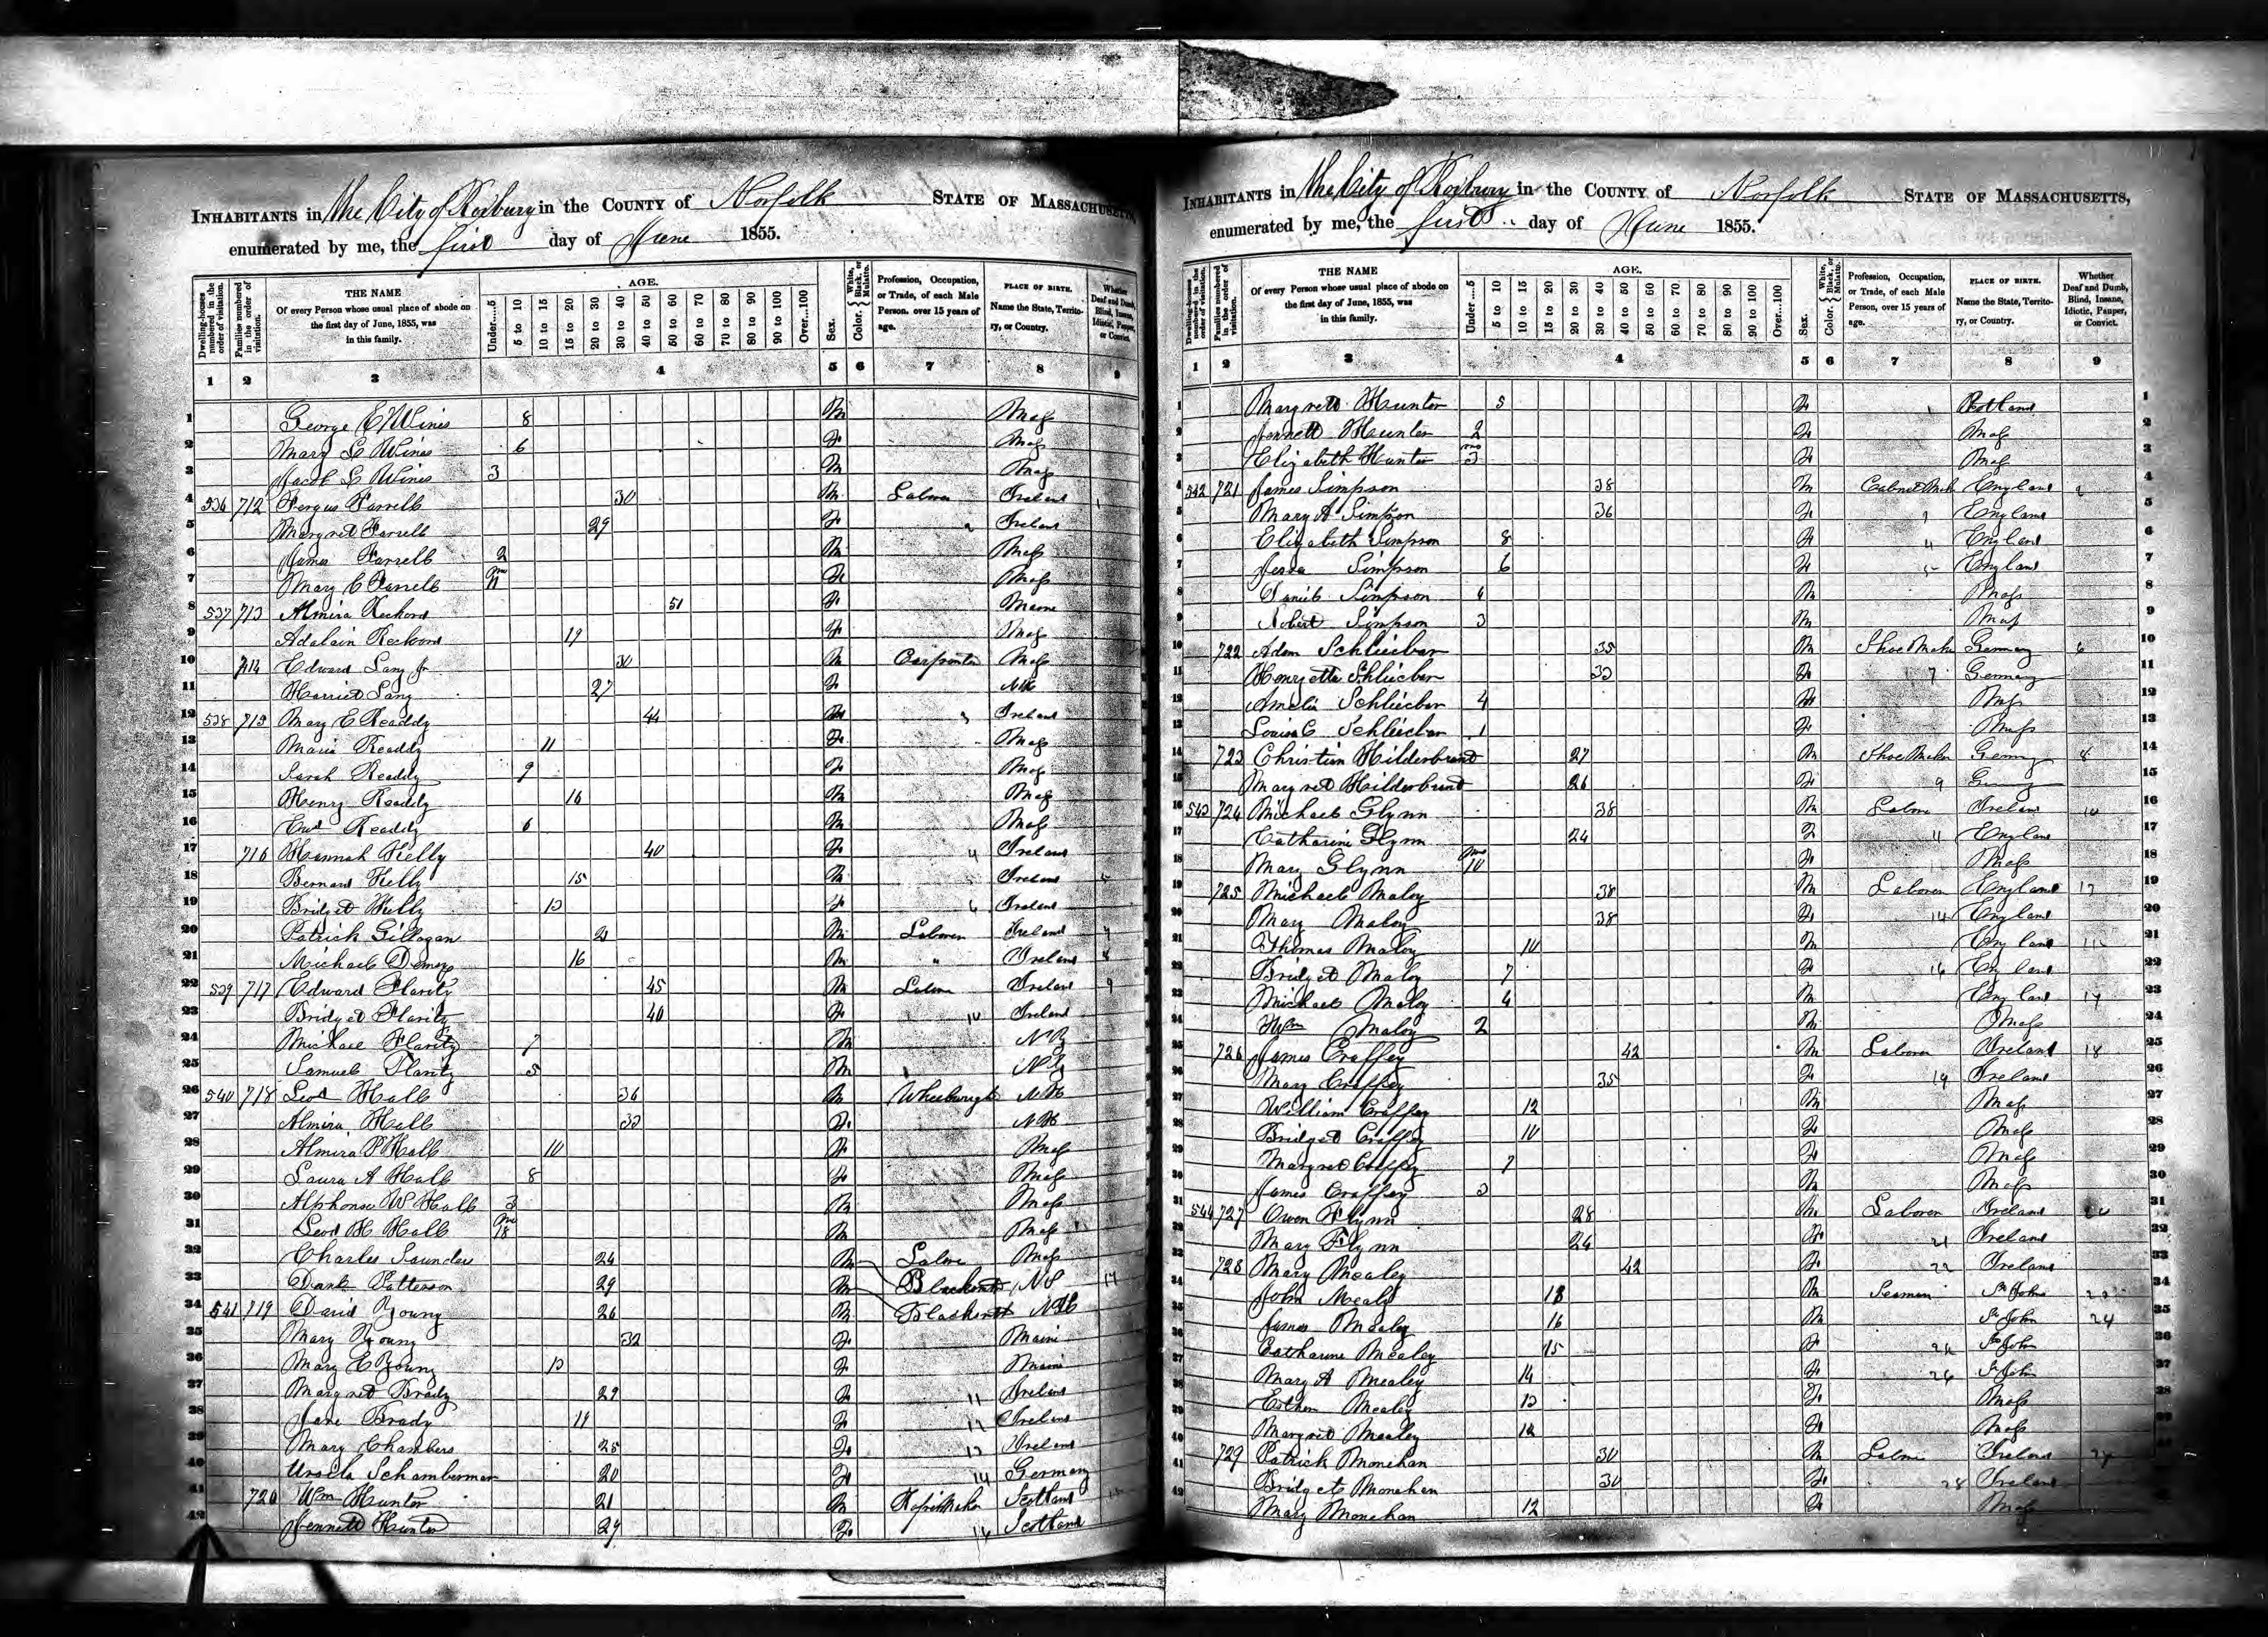 INHABITANTS in the City of Roxbury in the COUNTY of Norfolk STATE OF MASSACHUSETTS,
enumerated by me, the first day of June 1855.
Dwelling-houses numbered in the order of visitation. Families numbered in the order of visitation. THE NAME Of every Person whose usual place of abode on the first day of June, 1855, was in this family. AGE. Under....5 5 to 10 10 to 15 15 to 20 20 to 30 30 to 40 40 to 50 50 to 60 60 to 70 70 to 80 80 to 90 90 to 100 Over...100 Sex. Color. White, Black, or Mulatto. Profession, Occupation, or Trade, of each Male Person, over 15 years of age. PLACE OF BIRTH. Name the State, Territory, or Country. Whether Deaf and Dumb, Blind, Insane, Idiotic, Pauper, or Convict.
1 2 3 4 5 6 7 8 9
1 George E Wines 8 M Mass
2 Mary L Wines 6 F Mass
3 Jacob L Wines 3 M Mass
4 536 712 Fergus Farrell 30 M Laborer Ireland 1
5 Margret Farrell 29 F 2 Ireland
6 James Farrell 2 M Mass
7 Mary C Farrell F Mass
8 537 713 Almira Reckord 51 F Maine
9 Adalain Reckord 19 F Mass
10 714 Edward Lang Jr 30 M Carpenter Mass
11 Harriet Lang 27 F NH
12 538 715 Mary E Readdy 44 3 Ireland
13 Maria Readdy 11 F Mass
14 Sarah Readdy 9 F Mass
15 Henry Readdy 16 M Mass
16 Readdy 6 M Mass
17 716 Hannah Kelly 40 F 4 Ireland
18 Bernard Kelly 15 M Ireland 5
19 Bridget Kelly 13 F 6 Ireland
20 Patrick Gillogan 21 M Laborer Ireland 7
21 Michael Demps 16 M " Ireland 8
22 539 717 Edward Flarity 45 M Labore Ireland 9
23 Bridget Flarity 40 F 10 Ireland
24 Michael Flarity 7 M N Y
25 Samuel Flarity 5 M N Y
26 540 718 Hall 36 M Wheelwright NH
27 Almira Hall 33 F NH
28 Almira P Hall 10 F Mass
29 Laura A Hall 8 F Mass
30 Alphonso W Hall 3 M Mass
31 H Hall M Mass
32 Charles Saunders 24 M Mass
33 Patterson 29 M Blacksmith
34 541 719 David Young 26 M Blacksmith
35 Mary Young 32 F Maine
36 Mary E Young 13 F Maine
37 Margret Brady 29 F 11 Ireland
38 Jane Brady 19 F 12 Ireland
39 Mary Chambers 25 F 13 Ireland
40 Schamberman 20 F 14 Germany
41 720 Wm Hunter 21 M Scotland
42 Jennett Hunter 29 F 16 Scotland
INHABITANTS in the City of Roxbury in the COUNTY of Norfolk STATE OF MASSACHUSETTS,
enumerated by me, the first day of June 1855.
Dwelling-houses numbered in the order of visitation. Families numbered in the order of visitation. THE NAME Of every Person whose usual place of abode on the first day of June, 1855, was in this family. AGE. Under....5 5 to 10 10 to 15 15 to 20 20 to 30 30 to 40 40 to 50 50 to 60 60 to 70 70 to 80 80 to 90 90 to 100 Over...100 Sex. Color. White, Black, or Mulatto. Profession, Occupation, or Trade, of each Male Person, over 15 years of age. PLACE OF BIRTH. Name the State, Territory, or Country. Whether Deaf and Dumb, Blind, Insane, Idiotic, Pauper, or Convict.
1 2 3 4 5 6 7 8 9
1 Margrett Hunter 5 F 1 Scotland
2 Jennett Hunter 2 F Mass
3 Elizabeth Hunter mo 3 F Mass
4 542 721 James Simpson 38 M Cabinet Mak England 2
5 Mary A Simpson 36 F England
6 Elizabeth Simpson 8 F 4 England
7 Simpson 6 F 5 England
8 Daniel Simpson 4 M Mass
9 Robert Simpson 3 M Mass
10 722 Adam Schliecber 35 M Shoe Maker Germany 6
11 Henryetta Schliecber 33 F 7 Germany
12 Amelia Schliecber 4 F Mass
13 Louisa C Schliecber 1 F Mass
14 723 Christian Hilderbrand 27 M Shoe Maker Germany 8
15 Margret Hilderbrand 26 F 9 Germany
16 543 724 Michael Glynn 38 M Labore Ireland 10
17 Catharine Glynn 24 F 11 England
18 Mary Glynn mo 10 F Mass
19 725 Michael Maloy 38 M Laborer England 13
20 Mary Maloy 38 F 14 England
21 Thomas Maloy 10 M England
22 Bridget Maloy 7 F 16 England
23 Michael Maloy 6 M England 17
24 Wm Maloy 2 M Mass
25 726 James Craffey 42 M Laborer Ireland 18
26 Mary Craffey 35 F 19 Ireland
27 William Craffey 12 M Mass
28 Bridget Craffey 10 F Mass
29 Margret Craffey 7 F Mass
30 James Craffey 3 M Mass
31 544 727 Owen Flynn 28 M Laborer Ireland 20
32 Mary Flynn 24 F 21 Ireland
33 728 Mary Mealey 42 F 22 Ireland
34 John Mealy 18 M Seaman St John 23
35 James Mealey 16 M St John 24
36 Catharine Mealey 15 F St John
37 Mary A Mealey 14 F 26 St John
38 Esther Mealey 13 F Mass
39 Margret Mealey F Mass
40 729 Patrick Monehan 30 M Labore Ireland 27
41 Bridget Monehan 30 F 28 Ireland
42 Mary Monehan 12 F Mass